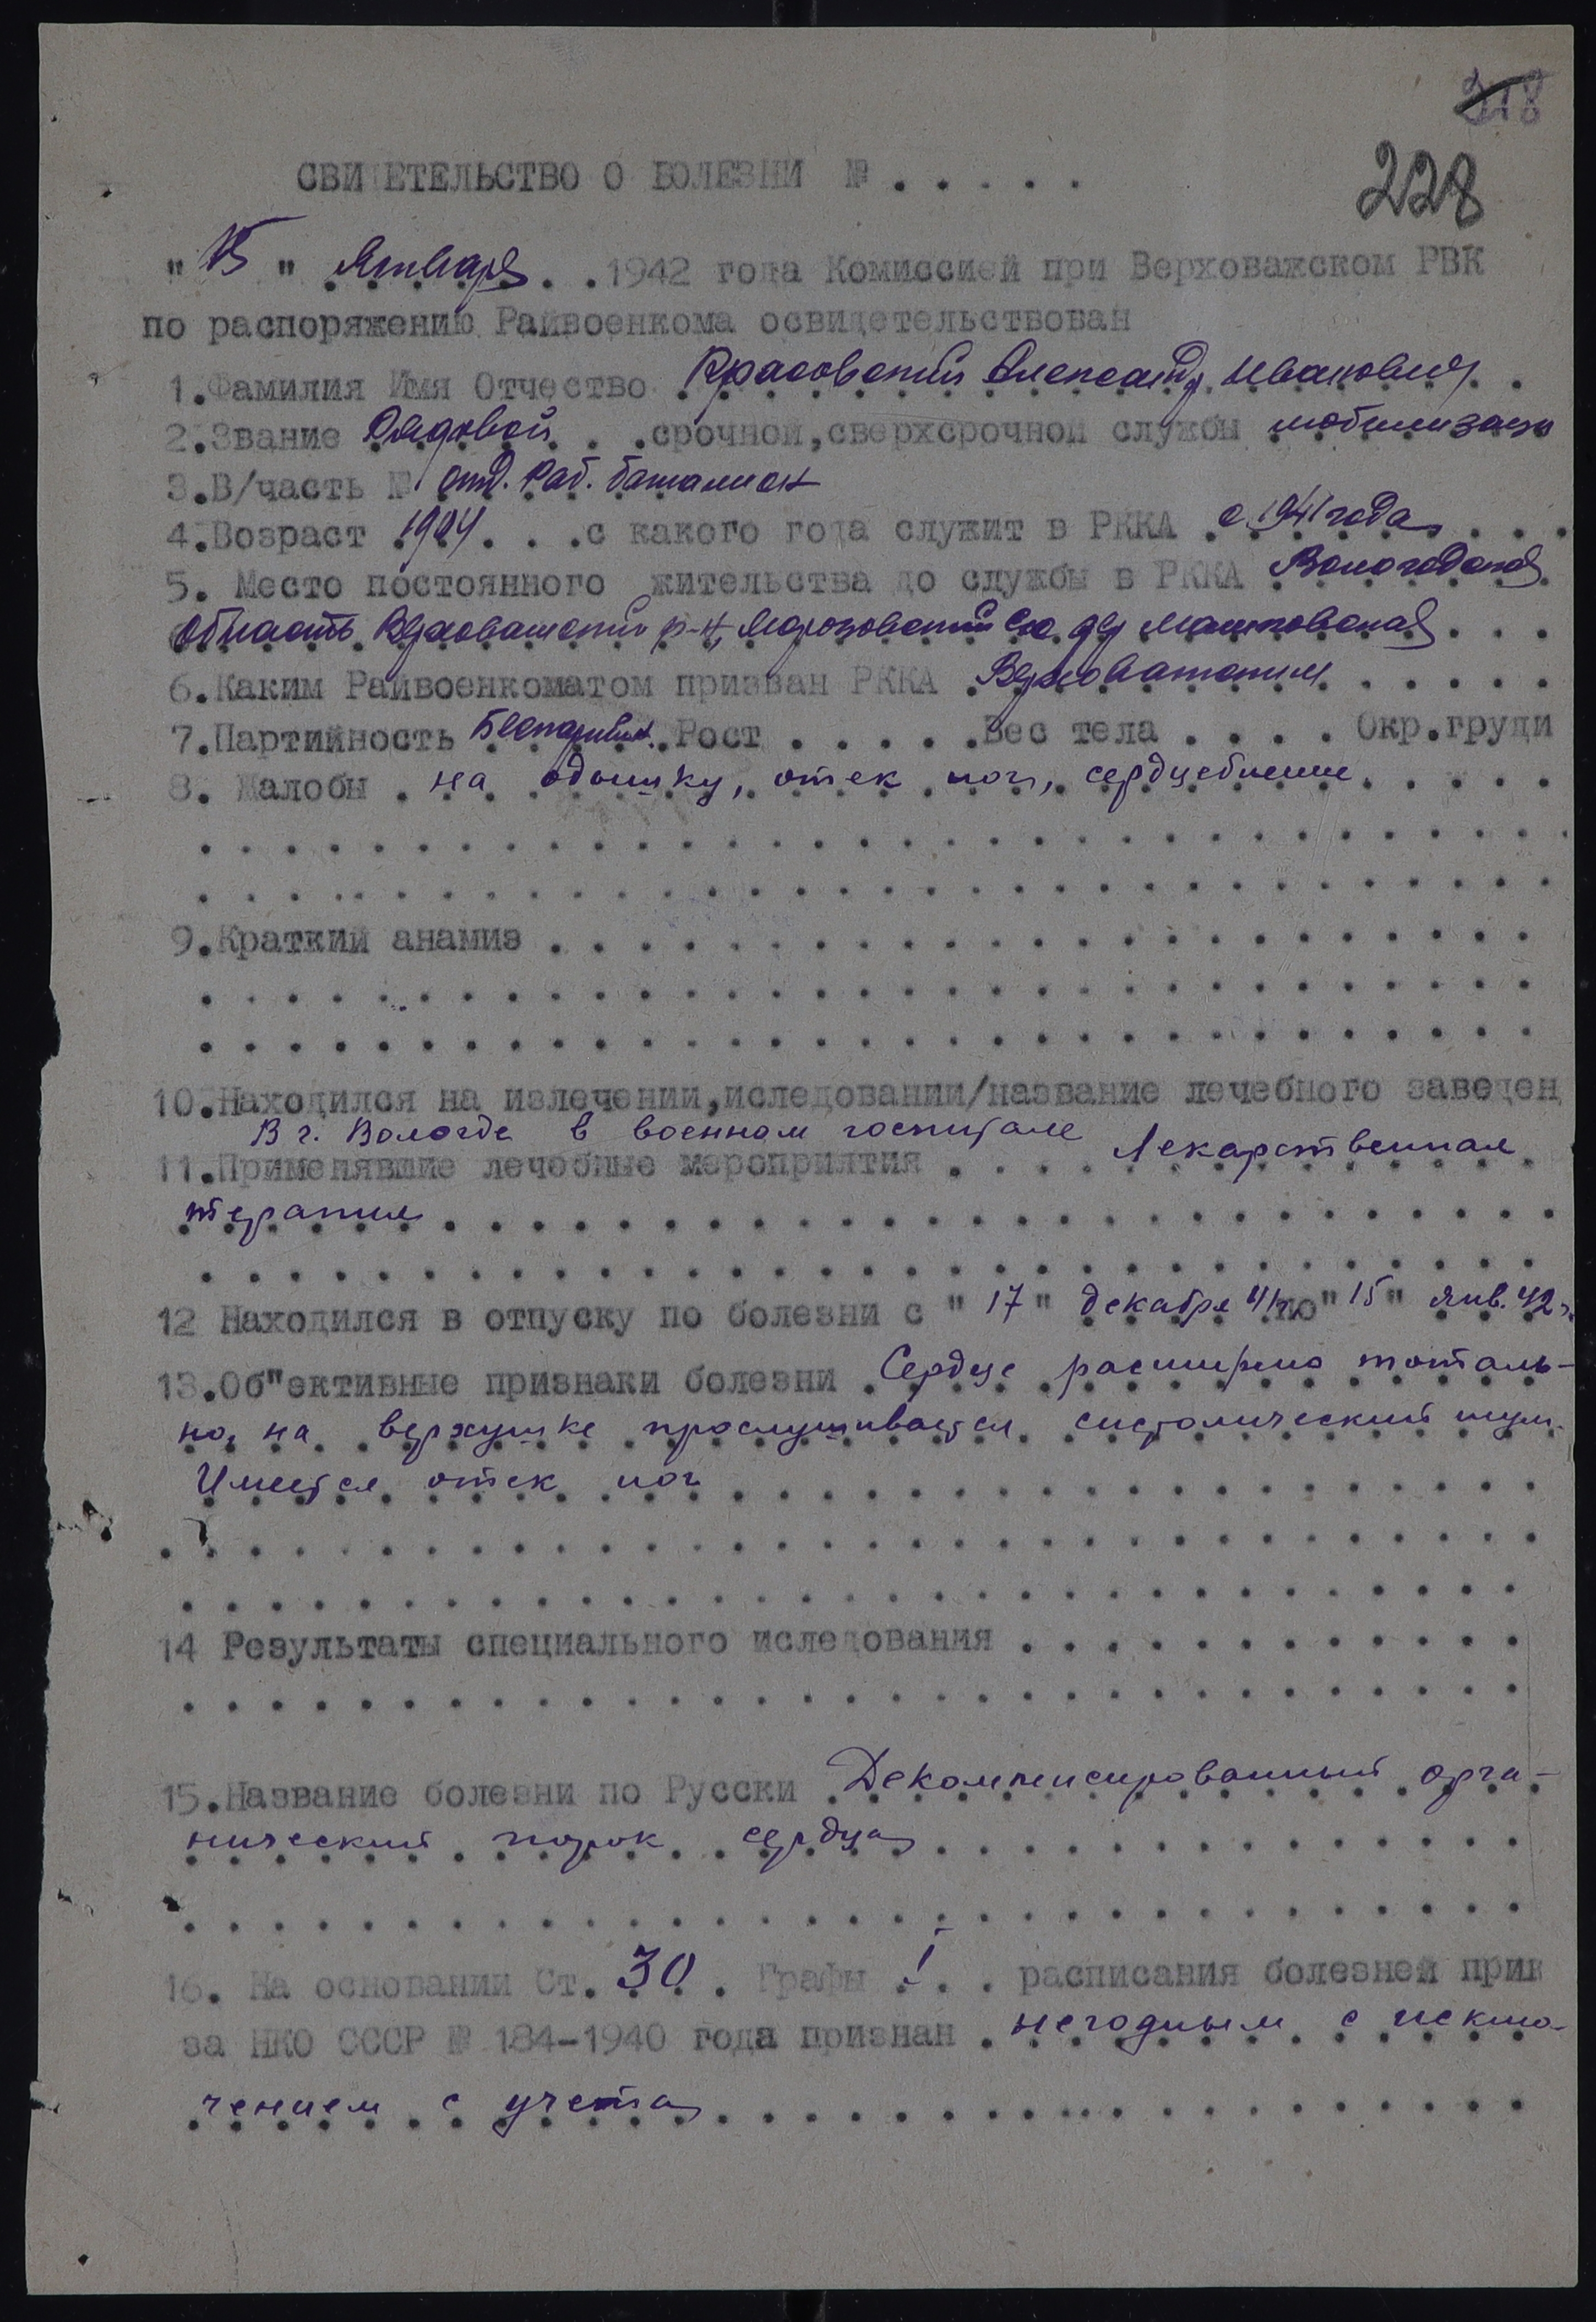 318
228
СВИДЕТЕЛЬСТВО О БОЛЕЗНИ № . . . . .
" 15 " Января . . 1942 года Комиссией при Верховажском РВК
по распоряжению Райвоенкома освидетельствован
1.Фамилия Имя Отчество Красовский Александр Иванович
2.Звание Рядовой . . срочной,сверхсрочной службы мобилизац
3.В/часть № отд. Раб. баталион
4.Возраст 1904 . . .с какого года служит в РККА с 1941 года . . .
5. Место постоянного жительства до службы в РККА Вологодская
область Верховажский р-н, Морозовский С/с дер Машковская . . .
6.Каким Райвоенкоматом призван РККА Верховажским . . . . .
7.Партийность Беспартийн. Рост . . . . .Вес тела . . . . Окр.груди
8. Жалобы . на одышку, отек ног, сердцебиение . . . . .
9.Краткий анамиз . . . . . . . . . . . . . . . . . . . . . . .
10.Находился на излечении,иследовании/название лечебного заведен
В г. Вологде в военном госпитале
11.Применявшие лечебные мероприятия . . . . Лекарственная
терапия . . . . . . . . . . . . . . . . . . . . . . . . . .
12 Находился в отпуску по болезни с " 17 " декабря 41г по " 15 " янв. 42г.
13.Об"ективные признаки болезни Сердце расширено тоталь-
но, на верхушке прослушивается систолический шум.
Имеется отек ног . . . . . . . . . . . . . . . . . . .
14 Результаты специального иследования . . . . . . . . . . . .
15.Название болезни по Русски Декомпенсированный орга-
нический порок сердца . . . . . . . . . . . . . .
16. На основании Ст. 30 . Графы I . . расписания болезней прик
за НКО СССР № 184-1940 года признан . негодным с исклю-
чением с учета . . . . . . . . . . . . . . . . . . .